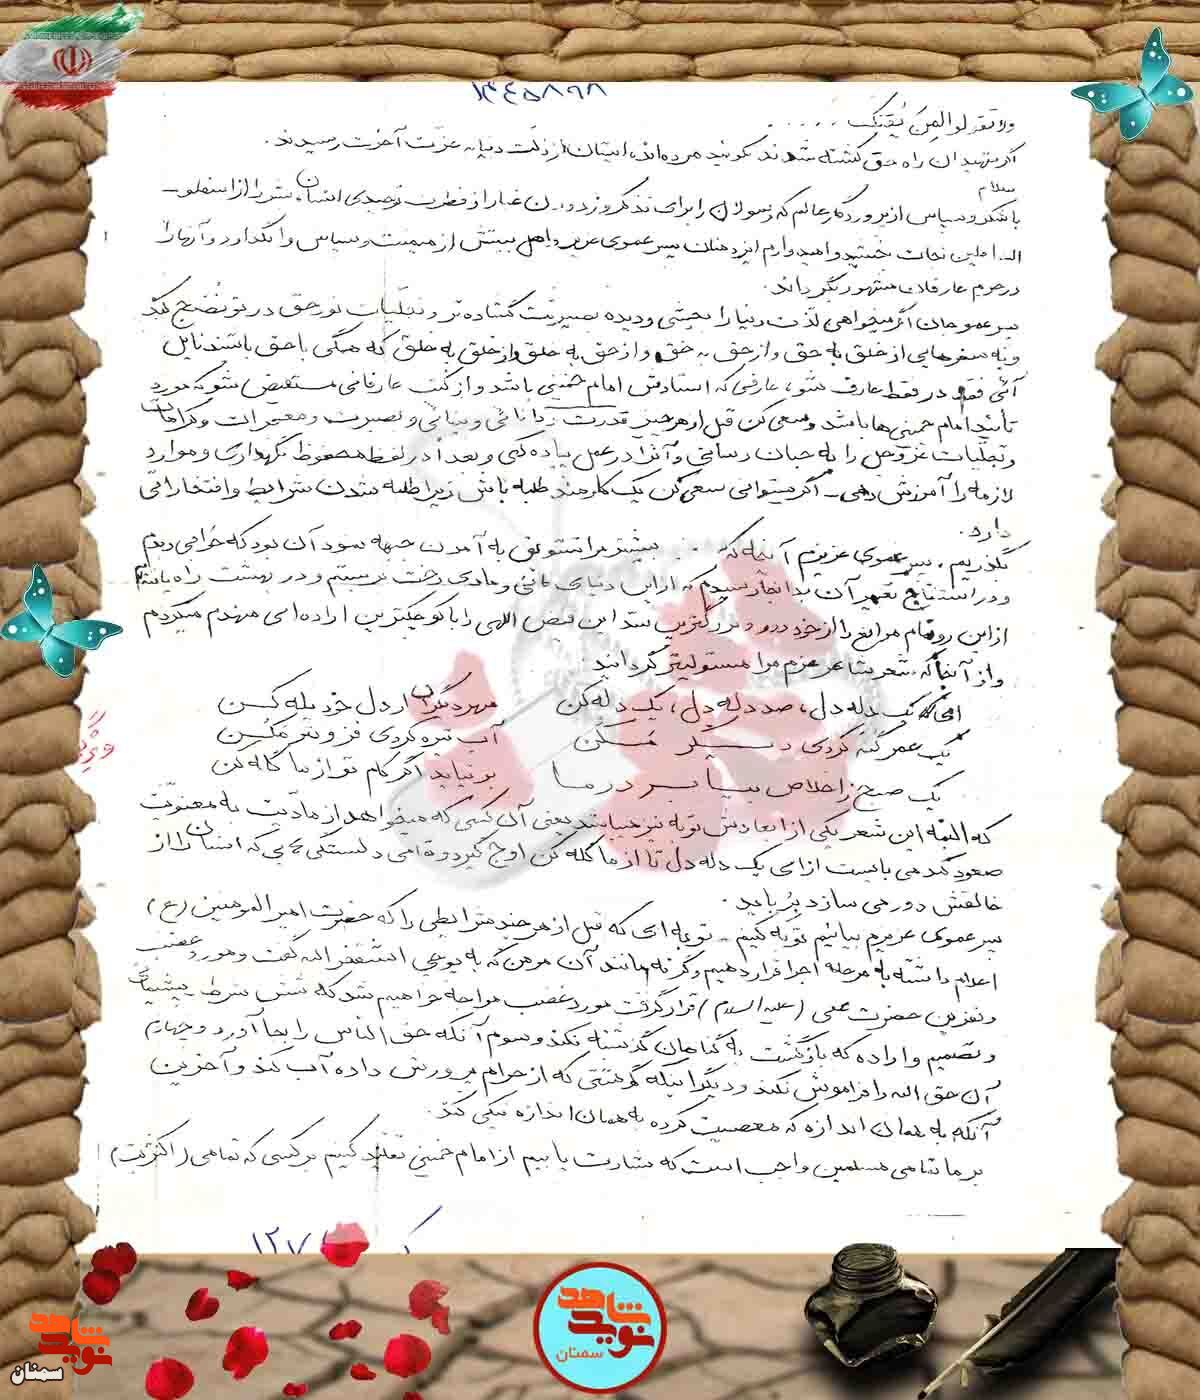 ۱۳۴۵۸۹۸
ولا تقولوا لمن یقتل .....
اگر شهیدان راه حق کشته شدند نگوئید مرده‌اند، ایشان از ذلت دنیا به عزت آخرت رسیدند.
سلام
با شکر و سپاس از پروردگار عالم که رسولان را برای تذکر و زدودن غبار از فطرت توحیدی انسان بشر را از اسفلو
السافلین نجات بخشید و امیدوارم ایزد منان پسر عموی عزیز و اهل بیتش از میمنت و سپاس وانگذارد و آنها را
در حرم عارفان مشهور بگرداند.
پسر عمو جان اگر میخواهی لذت دنیا را بچشی و دیده بصیرت گشاده‌تر و تجلیات نور حق در تو نضج کند
و به سفرهایی از خلق به حق و از حق به حق و از حق به خلق و از خلق به خلق که همگی با حق باشند نایل
آئی فقط در فقط عارف شو، عارفی که استادش امام خمینی باشد و از کتب عارفانی مستفیض شو که مورد
تأیید امام خمینی‌ها باشد و سعی کن قبل از هر چیز قدرت دانائی و بینائی و بصیرت و معجزات و کرامات
و تجلیات عزوجل را به جان رسانی و آنرا در عمل پیاده کنی و بعداً در لفظ محفوظ نگهداری و موارد
لازمه را آموزش دهی – اگر میتوانی سعی کن یک کارمند طلبه باش زیرا طلبه شدن شرایط و افتخاراتی
دارد.
بگذریم، پسر عموی عزیزم آنچه که بیشتر مرا تشویق به آمدن جبهه نمود آن بود که خوابی دیدم
و در استنتاج تعبیر آن بدانجا رسیدم که از این دنیای فانی و مادی رخت بربستم و در بهشت راه یافتم
از این رو تمام موانع را از خود دور و بزرگترین سد این فیض اللهی را با کوچکترین اراده‌ای منهدم میکردم
و از آنجا که شعر شاعر عزیزم مرا مسئولیتر گردانید.
ای یک دله دل، صد دله دل، یک دله کن
مهر دیگران از دل خود یله کن
یک عمر گنه کردی دیگر مکن
آب تیره کردی فزونتر مکن
یک صبح ز اخلاص بیا بر در ما
بر نیاید اگر کام تو از ما گله کن
که البته این شعر یکی از ابعادش توبه نیز میباشد یعنی آن کسی که میخواهد از مادیت به معنویت
صعود کند می بایست از ای یک دله دل تا از ما گله کن اوج گیرد و تمامی دلبستگی‌هایی که انسان را از
خالقش دور می سازد برباید.
پسر عموی عزیزم بیائیم توبه کنیم – توبه‌ای که قبل از هر چند شرایطی را که حضرت امیرالمومنین (ع)
اعلام داشته به مرحله اجرا قرار دهیم وگرنه مانند آن مومن که به پوچی استغفرالله گفت و مورد غضب
و نفرین حضرت علی (علیه السلام) قرار گرفت مورد غضب مواجه خواهیم شد که شش شرط پشیمانی
و تصمیم و اراده که بازگشت به گناهان گذشته نکند و سوم آنکه حق الناس را بجا آورد و چهارم
آن حق الله را فراموش نکند و دیگر اینکه گوشتی که از حرام پرورش داده آب کند و آخرین
آنکه به همان اندازه که معصیت کرده به همان اندازه نیکی کند.
بر ما تمامی مسلمین واجب است که بشارت یابیم از امام خمینی تقلید کنیم بر کسی که تمامی (اکثریت)
۱۲۷
نوید شاهد
سمنان
نوید شاهد
سمنان